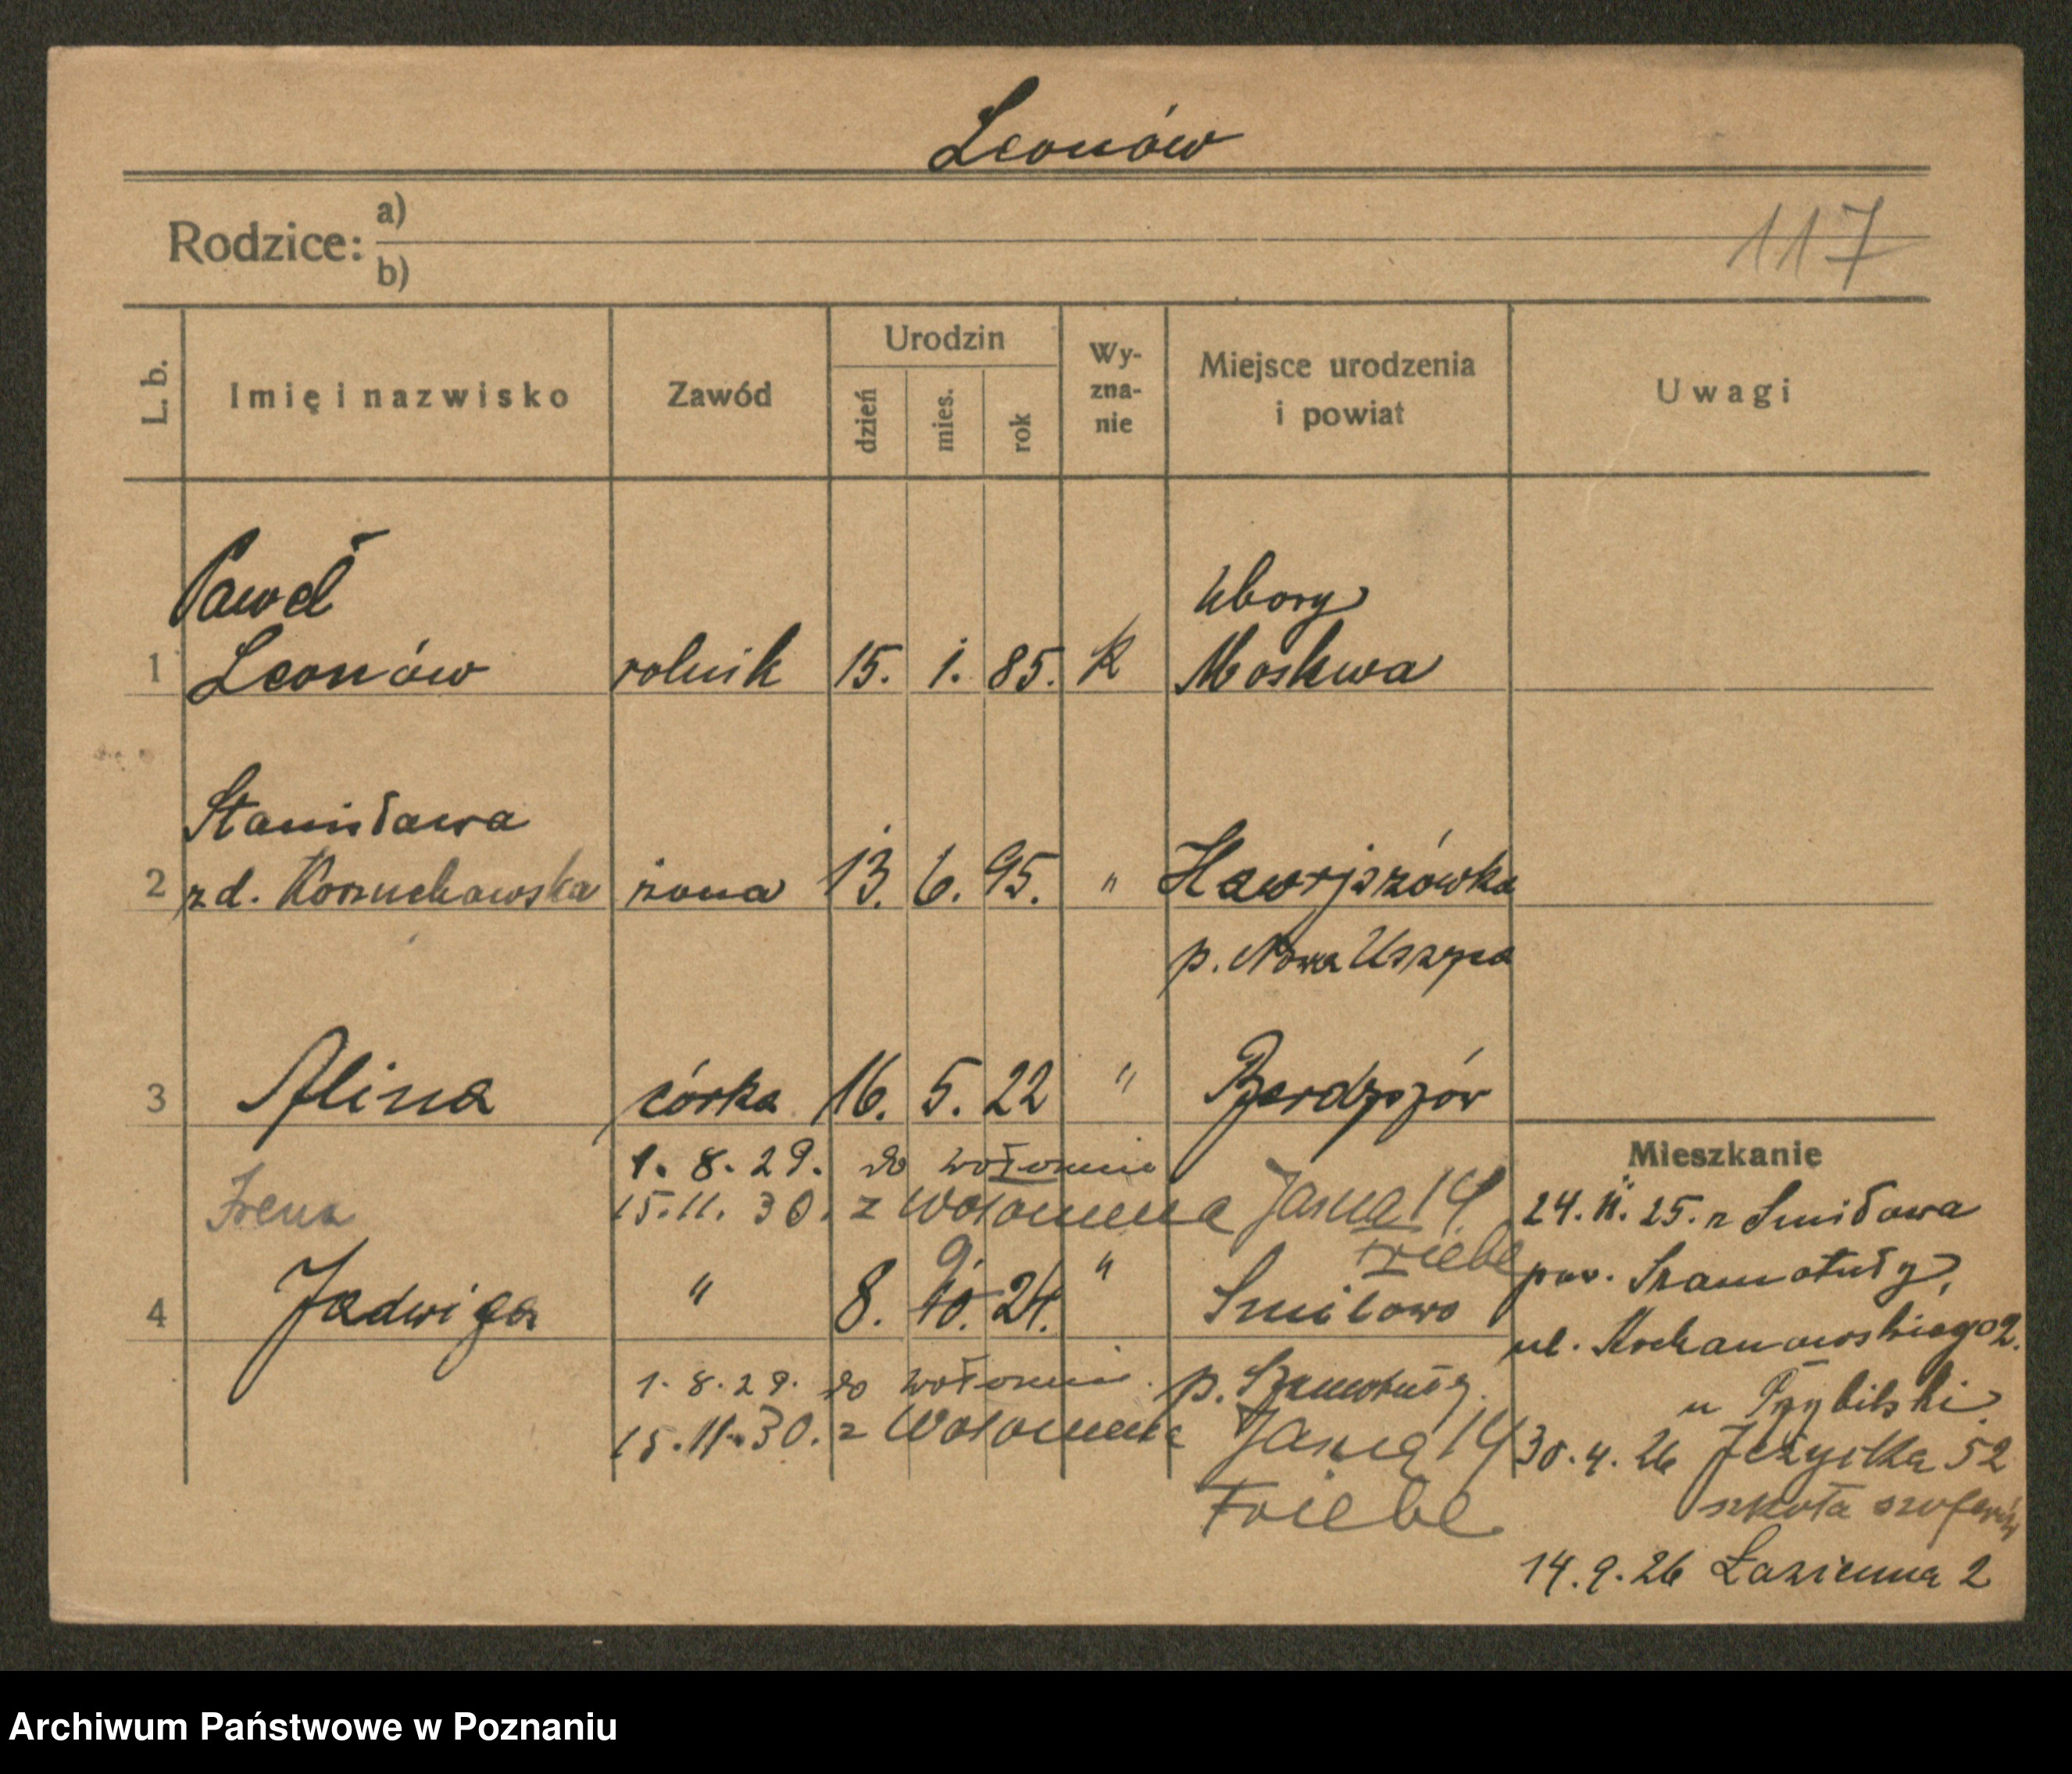 Leonów
Rodzice: a)
b)
117
L. b.
Imię i nazwisko
Zawód
Urodzin
dzień
mies.
rok
Wy-
zna-
nie
Miejsce urodzenia
i powiat
Uwagi
Paweł
Ubory
1 Leonów rolnik 15. 1. 85. K Moskwa
Stanisława
2 z d. Korzuchowska żona 13. 6. 95. " Hawryszówka
p. Nowa Uszyca
3 Alina córka 16. 5. 22 " Berdyczów
1. 8. 29. do Wołomin
Irena 15. 11. 30. z Wołomina Jana 14
Friebe
9.
4 Jadwiga " 8. 10. 24. " Smiłowo
1. 8. 29. do Wołomin p. Szamotuły
15. 11. 30. z Wołomina Jana 14
Friebe
Mieszkanie
24. II. 25. z Smiłowa
pow. Szamotuły,
ul. Kochanowskiego 2.
u Przybilski
30. 4. 26 Jeżycka 52
szkoła szoferów
14. 9. 26 Łazienna 2
Archiwum Państwowe w Poznaniu